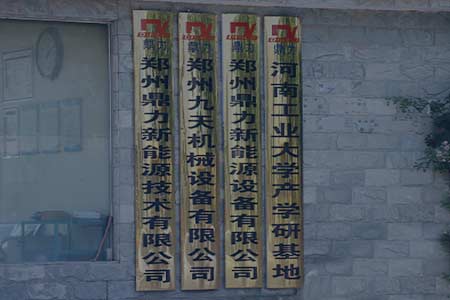 鼎力
郑州鼎力新能源技术有限公司
鼎力
郑州九天机械设备有限公司
鼎力
郑州鼎力新能源设备有限公司
鼎力
河南工业大学产学研基地